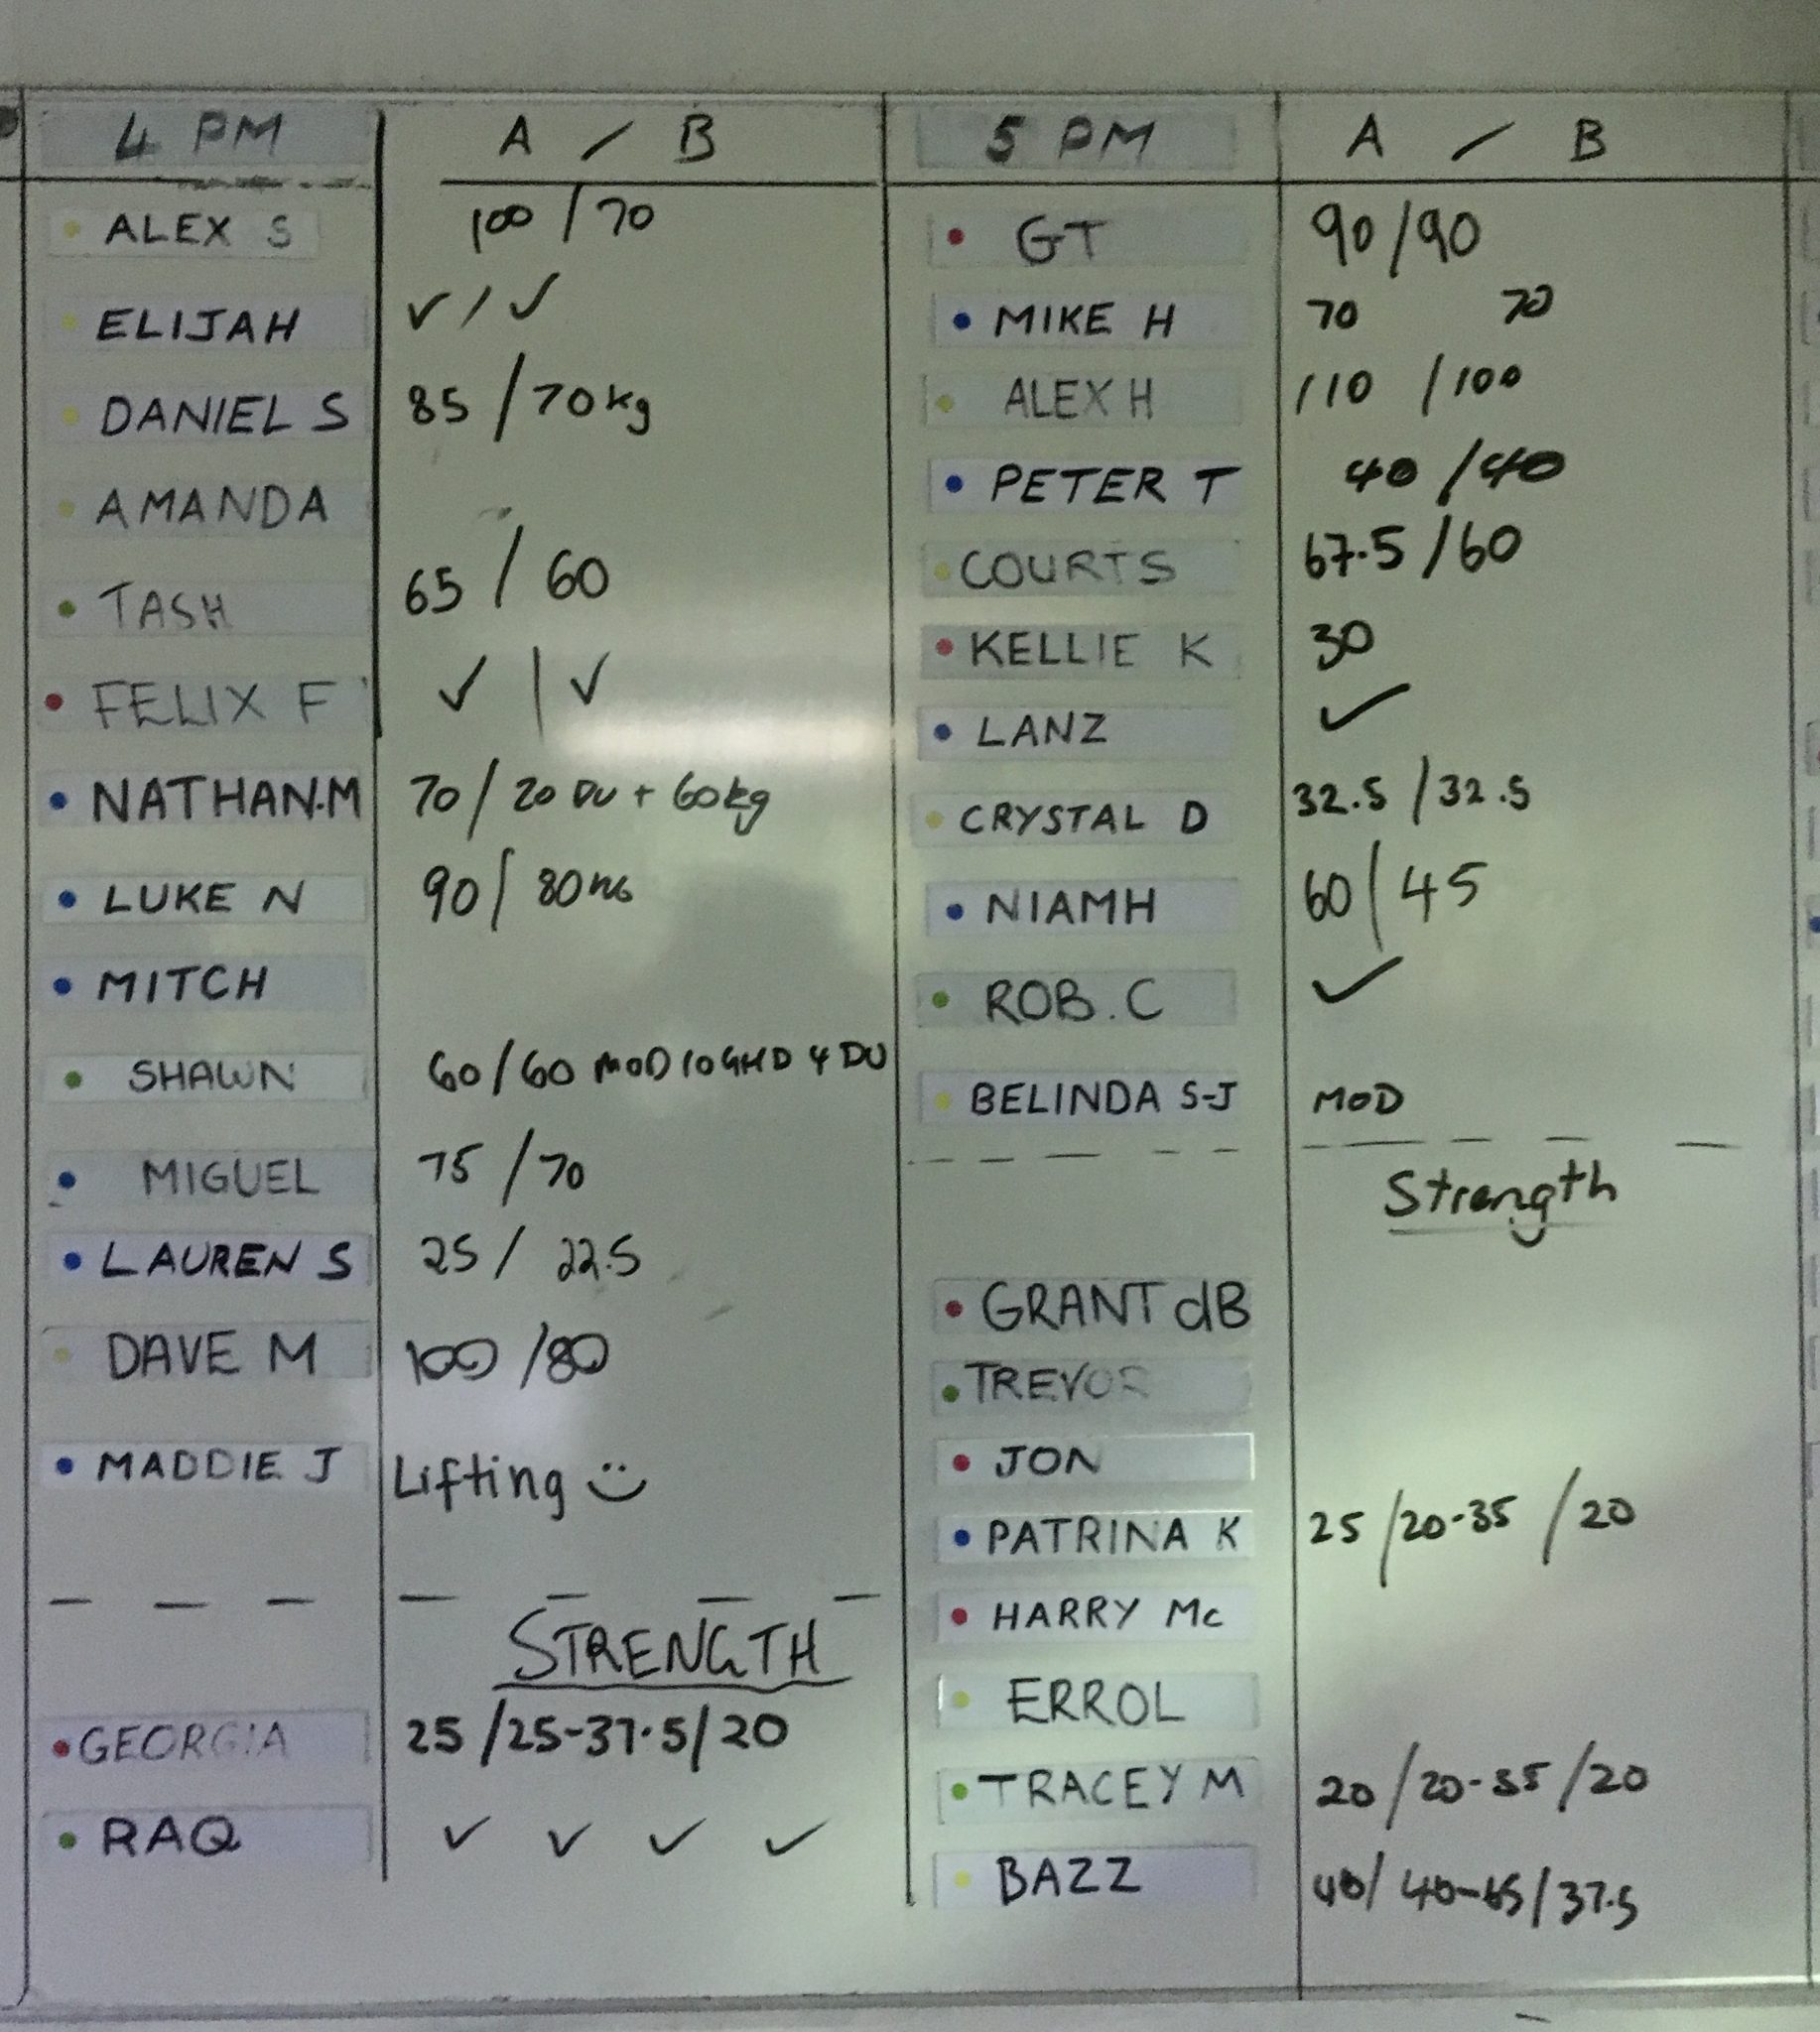 4 PM A / B
ALEX S 100 / 70
ELIJAH ✓ / ✓
DANIEL S 85 / 70kg
AMANDA
TASH 65 / 60
FELIX F ✓ | ✓
NATHAN.M 70 / 20 DU + 60kg
LUKE N 90 / 80KG
MITCH
SHAWN 60/60 MOD 10 GHD 4 DU
MIGUEL 75 / 70
LAUREN S 25 / 22.5
DAVE M 100 / 80
MADDIE J Lifting :)
STRENGTH
GEORGIA 25 / 25-37.5 / 20
RAQ ✓ ✓ ✓ ✓
5 PM A / B
GT 90 / 90
MIKE H 70 70
ALEX H 110 / 100
PETER T 40 / 40
COURTS 67.5 / 60
KELLIE K 30
LANZ ✓
CRYSTAL D 32.5 / 32.5
NIAMH 60 | 45
ROB. C ✓
BELINDA S-J MOD
Strength
GRANT dB
TREVOR
JON
PATRINA K 25 / 20-35 / 20
HARRY Mc
ERROL
TRACEY M 20 / 20-35 / 20
BAZZ 40 / 40-65 / 37.5